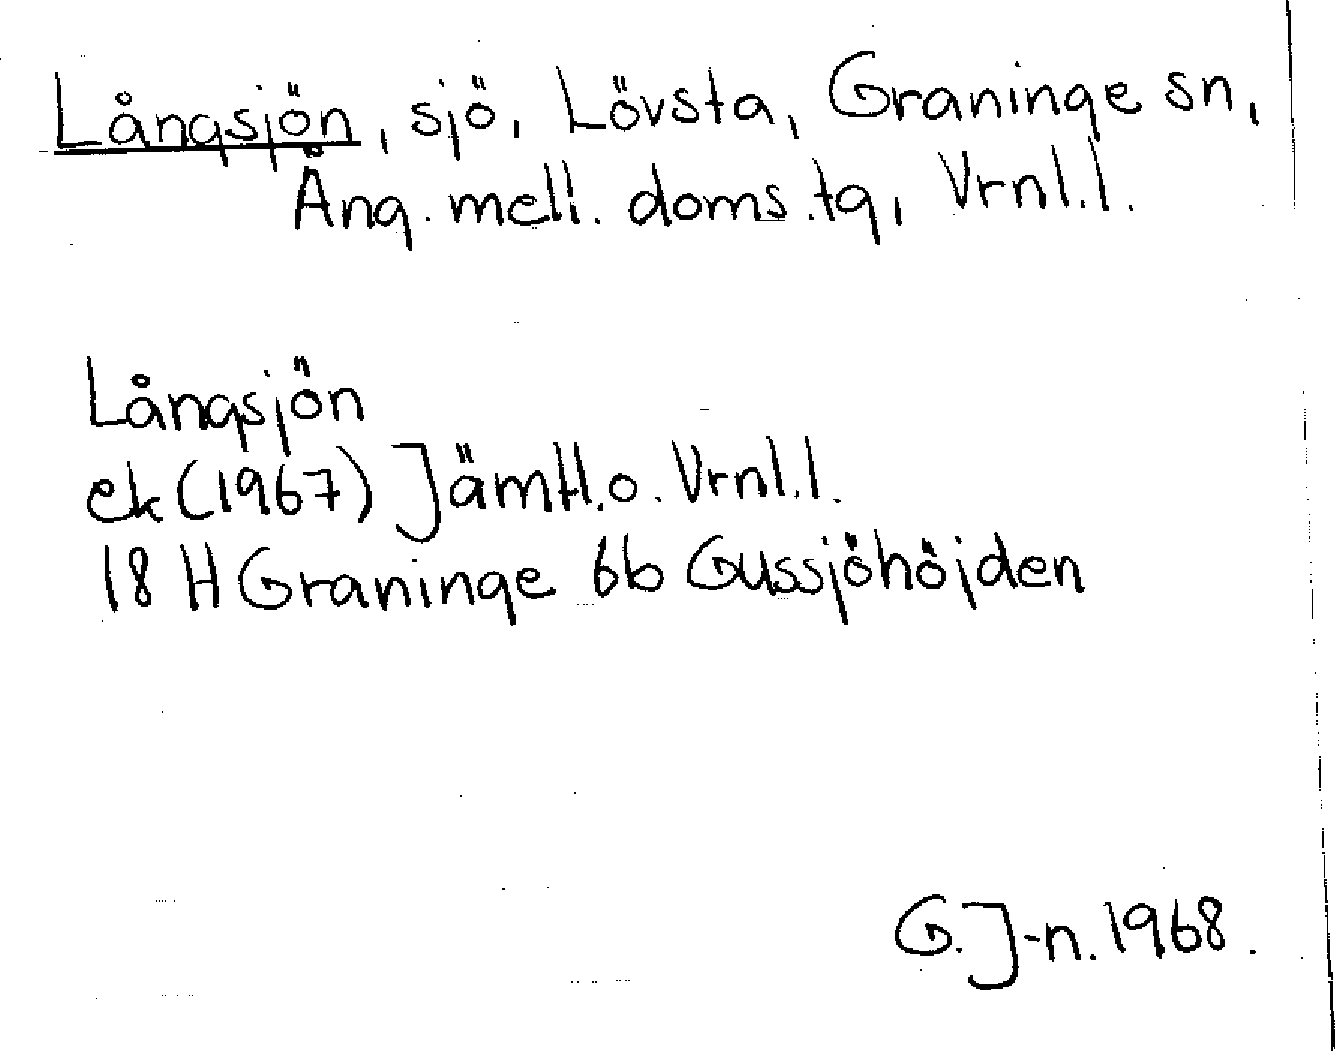 Långsjön, sjö, Lövsta, Graninge sn,
Ång. mell. doms.tg, Vrnl.l.
Långsjön
ek (1967) Jämtl.o. Vrnl.l.
18 H Graninge 6b Gussjöhöjden
G. J-n. 1968.